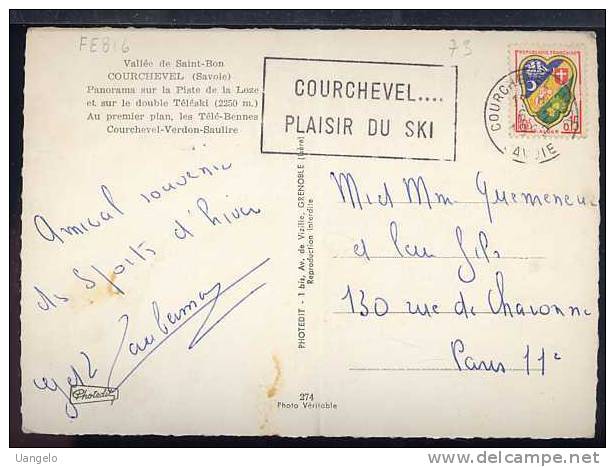 FEB16
73
Vallée de Saint-Bon
COURCHEVEL (Savoie)
Panorama sur la Piste de la Loze
et sur le double Téléski (2250 m.)
Au premier plan, les Télé-Bennes
Courchevel-Verdon-Saulire
COURCHEVEL....
PLAISIR DU SKI
REPUBLIQUE FRANCAISE
0,15
ALGER
COURCHE
SAVOIE
Amical souvenir
des Sports d'hiver
Photedit
PHOTEDIT - 1 bis, Av. de Vizille, GRENOBLE (Isère)
Reproduction interdite
274
Photo Véritable
M et Mme Quemeneur
et leur fils
130 rue de Charonne
Paris 11e
Uangelo
delcampe.net